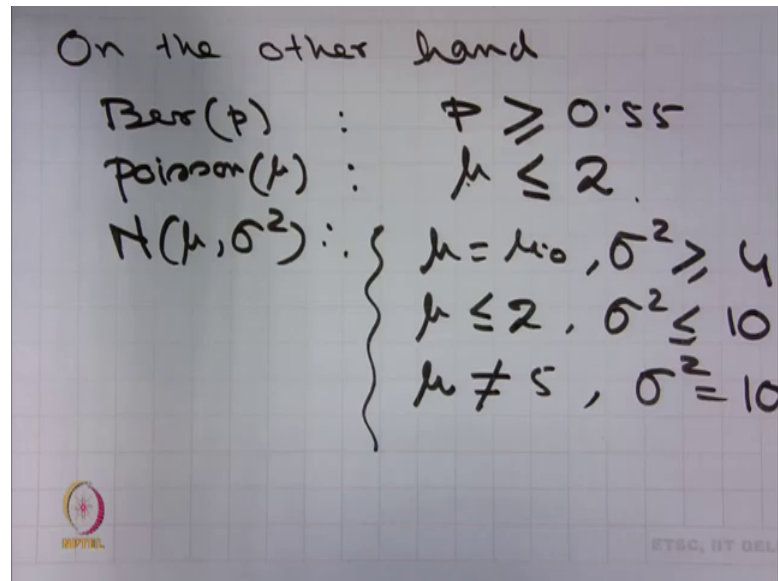 On the other hand
Ber(p) : p ≥ 0.55
poisson(μ) : μ ≤ 2.
N(μ, σ²) : { μ = μ₀, σ² ≥ 4
μ ≤ 2, σ² ≤ 10
μ ≠ 5, σ² = 10
NPTEL
ETSC, IIT DEL